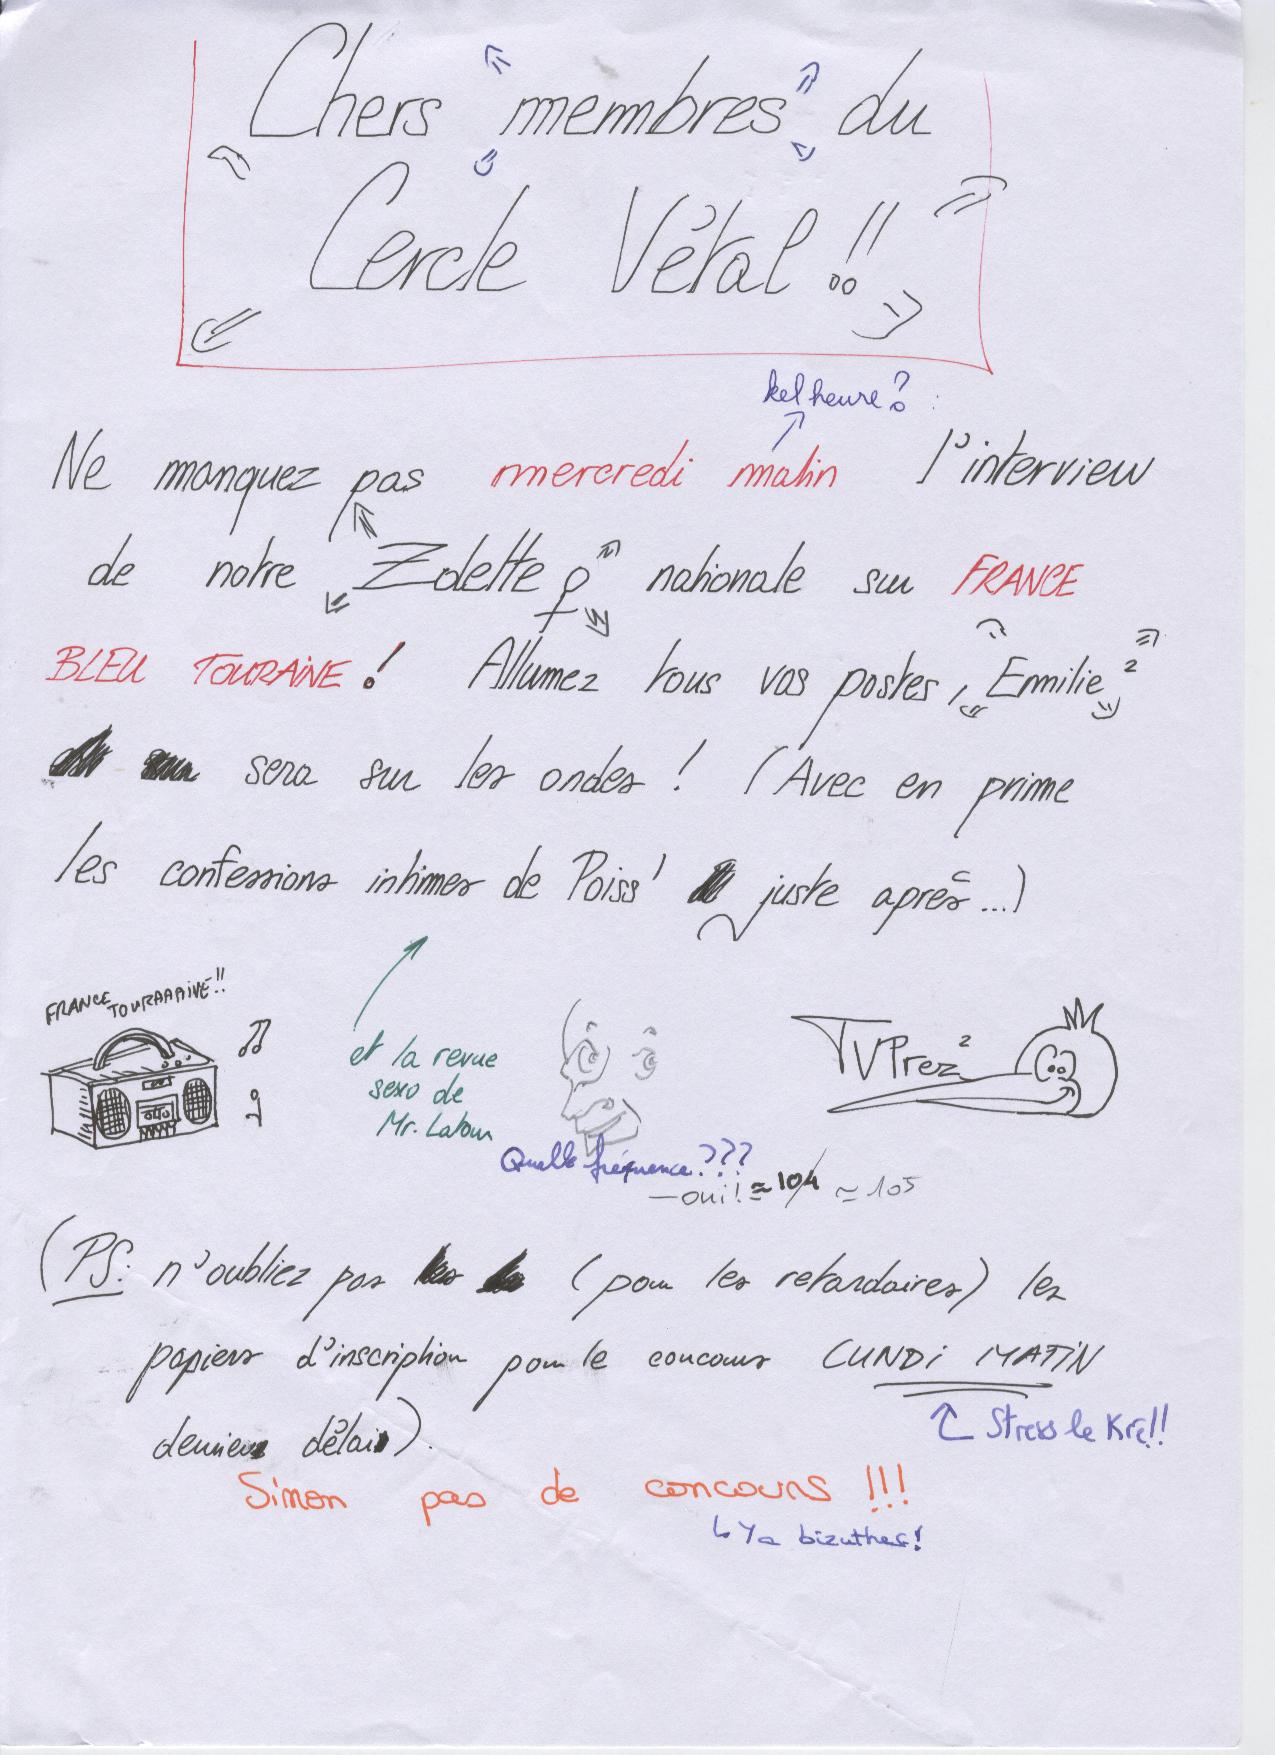 Chers "membres" du
Cercle Vétal !!
kel heure?
Ne manquez pas mercredi matin l'interview
de notre Zolette nationale sur FRANCE
BLEU TOURAINE ! Allumez tous vos postes, Emilie²
sera sur les ondes ! (Avec en prime
les confessions intimes de Poiss' juste après...)
FRANCE TOURAAAINE!!
et la revue
sexo de
Mr. Latour
TVPrez²
Quelle fréquence???
- oui! ≈ 104 ≈ 105
(PS: n'oubliez pas (pour les retardaires) les
papiers d'inscription pour le concours LUNDI MATIN
dernier délai).
Stress le Kré!!
Sinon pas de concours !!!
↳ Ya bizuther!